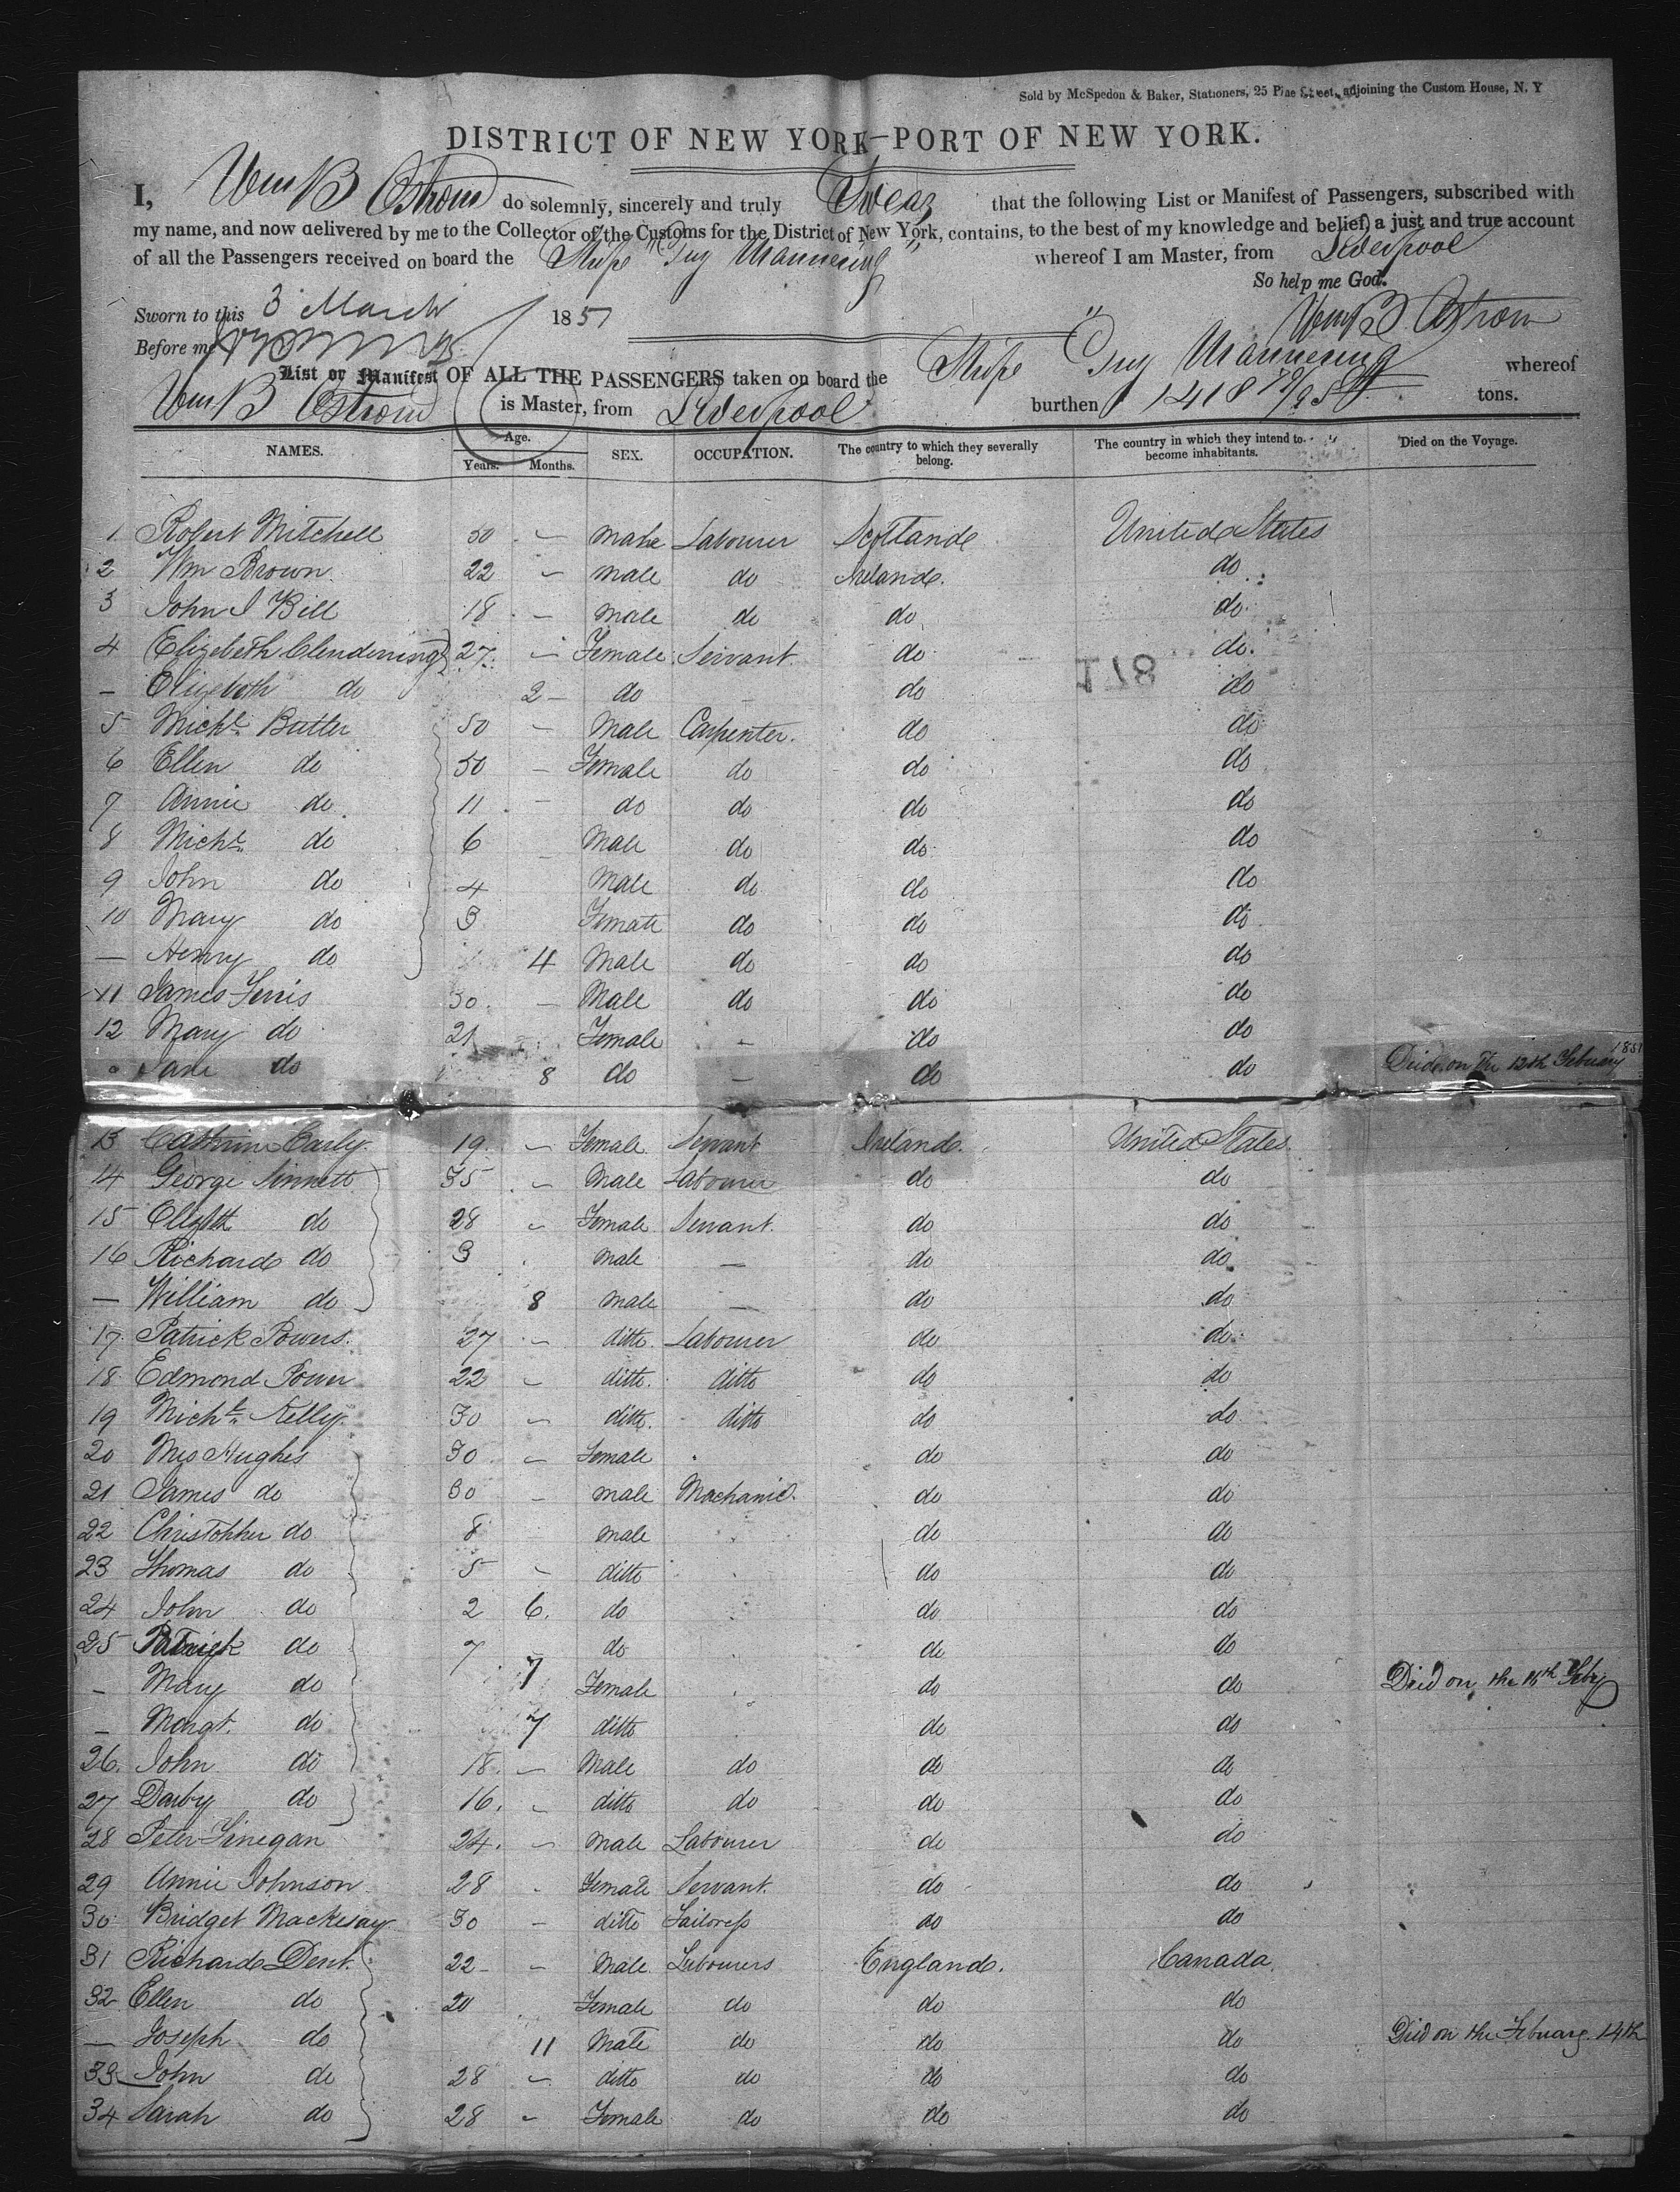 Sold by McSpedon & Baker, Stationers, 25 Pine Street, adjoining the Custom House, N. Y
DISTRICT OF NEW YORK—PORT OF NEW YORK.
I, Wm B Ostrom do solemnly, sincerely and truly Swear that the following List or Manifest of Passengers, subscribed with
my name, and now delivered by me to the Collector of the Customs for the District of New York, contains, to the best of my knowledge and belief, a just and true account
of all the Passengers received on board the Ship "Guy Mannering" whereof I am Master, from Liverpool
So help me God.
Sworn to this 3 March 1851
Wm B. Ostrom
Before me
List or Manifest OF ALL THE PASSENGERS taken on board the Ship "Guy Mannering whereof
Wm B Ostrom is Master, from Liverpool burthen 1418 /95 tons.
NAMES. Age. Years. Months. SEX. OCCUPATION. The country to which they severally belong. The country in which they intend to become inhabitants. Died on the Voyage.
1 Robert Mitchell 50 - male Labourer Scotland United States
2 Wm Brown 22 - male do Ireland. do
3 John J Bill 18 - male do do do
4 Elizebeth Clendining 27 - Female Servant do do
- Elizebeth do 2 - do - do do
178
5 Michl Butler 50 - Male Carpenter. do do
6 Ellen do 50 - Female do do do
7 Annie do 11 - do do do do
8 Michl do 6 - Male do do do
9 John do 4 Male do do do
10 Mary do 3 Female do do do
— Henry do 4 Male do do do
11 James Ferris 30 - Male do do do
12 Mary do 21 Female - do do
Jane do 8 do - do do Died on the 12th Febuary 1851
13 Cathrine Carly 19 - Female Servant Ireland. United States.
14 George Sinnett 35 - Male Labourer do do
15 Elizbth do 28 - Female Servant. do do
16 Richard do 3 male — do do
— William do 8 male — do do
17 Patrick Powers. 27 - ditto Labourer do do
18 Edmond Power 22 - ditto. ditto do do
19 Michl Kelly 30 - ditto. ditto do do
20 Mrs Hughes 30 - Female do do
21 James do 30 - male Machanic. do do
22 Christopher do 8 male do do
23 Thomas do 5 - ditto do do
24 John do 2 6. do do do
25 Patrick do 7 do do do
- Mary do 7 Female do do Died on the 15th Feby
- Margt. do 7 ditto do do
26. John do 18. - Male do do do
27 Darby do 16. - ditto do do do
28 Peter Finegan 24. - Male Labourer do do
29 Annie Johnson 28 - Female Servant. do do
30 Bridget Mackesay 30 - ditto Tailoress do do
31 Richard Dent. 22 - - Male Labourers England. Canada
32 Ellen do 20 Female do do do
— Joseph do 11 Male do do do Died on the Febuary 14th
33 John do 28 - ditto do do do
34 Sarah do 28 - Female do do do